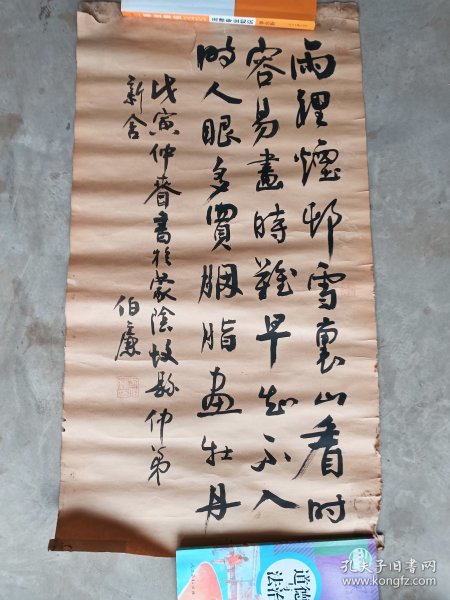 雨裡煙邨雪裏山看时
容易畫時難早知不入
時人眼多買胭脂畫牡丹
戊寅仲春書於蒙陰故縣仲弟
新舍
伯廉
道德
法治
孔夫子旧书网
www.kongfz.com